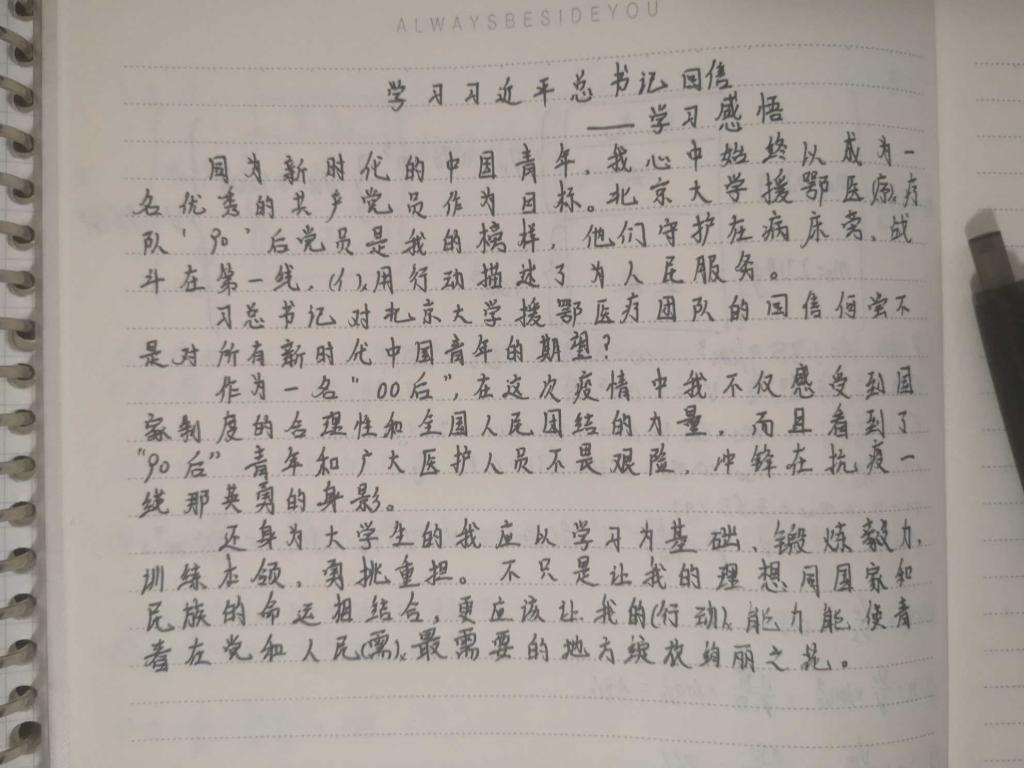 ALWAYSBESIDEYOU
学习习近平总书记回信
——学习感悟
同为新时代的中国青年,我心中始终以成为一
名优秀的共产党员作为目标。北京大学援鄂医疗
队'90'后党员是我的榜样,他们守护在病床旁,战
斗在第一线,(亻)用行动描述了为人民服务。
习总书记对北京大学援鄂医疗团队的回信何尝不
是对所有新时代中国青年的期望?
作为一名"00后",在这次疫情中我不仅感受到国
家制度的合理性和全国人民团结的力量,而且看到了
"90后"青年和广大医护人员不畏艰险,冲锋在抗疫一
线那英勇的身影。
还身为大学生的我应以学习为基础、锻炼毅力,
训练本领,勇挑重担。不只是让我的理想同国家和
民族的命运相结合,更应该让我的(行动)能力能使青
着在党和人民(需)最需要的地方绽放绚丽之花。